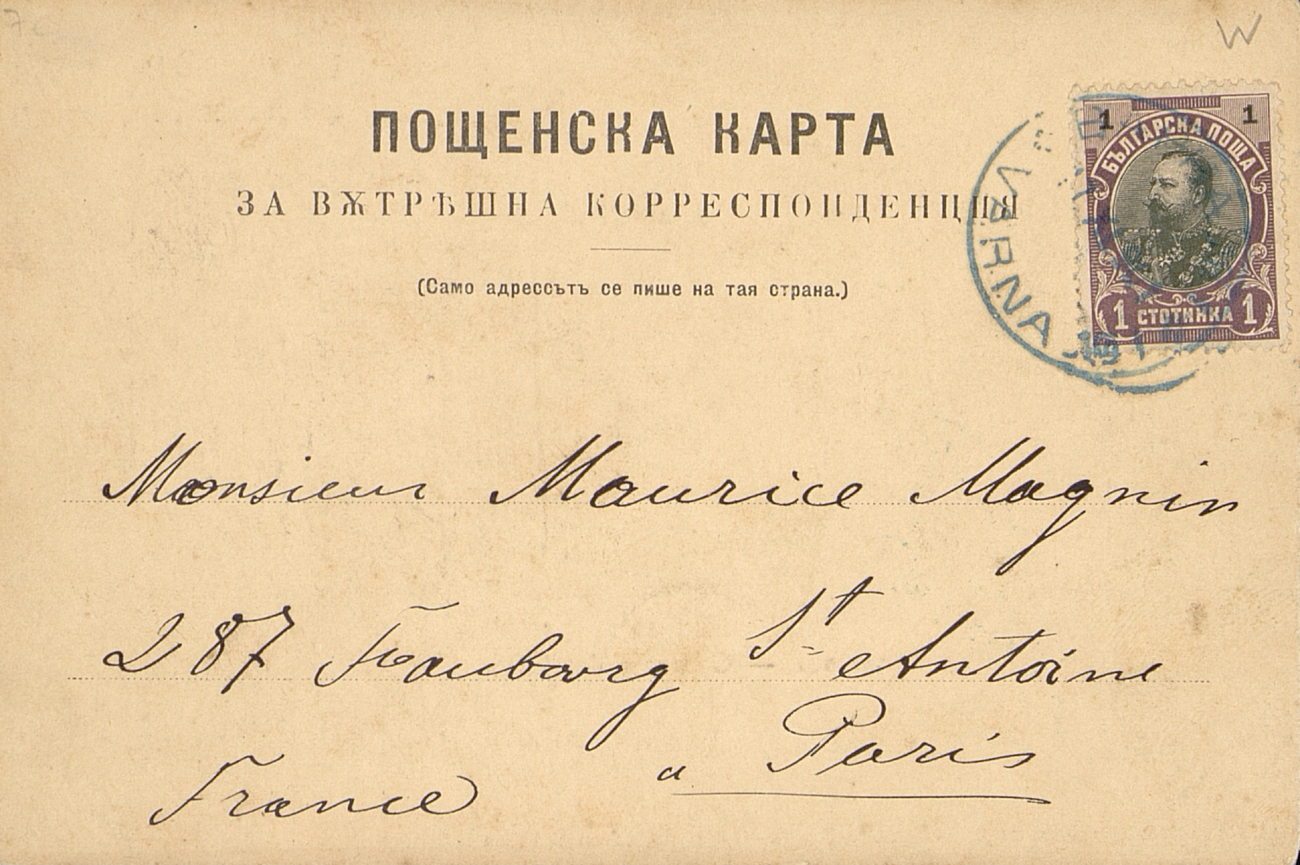 W
ПОЩЕНСКА КАРТА
ЗА ВѪТРѢШНА КОРРЕСПОНДЕНЦИЯ
(Само адрессътъ се пише на тая страна.)
1 1
БЪЛГАРСКА ПОЩА
1 СТОТИНКА 1
VARNA
Monsieur Maurice Magnin
287 Faubourg St Antoine
a Paris
France